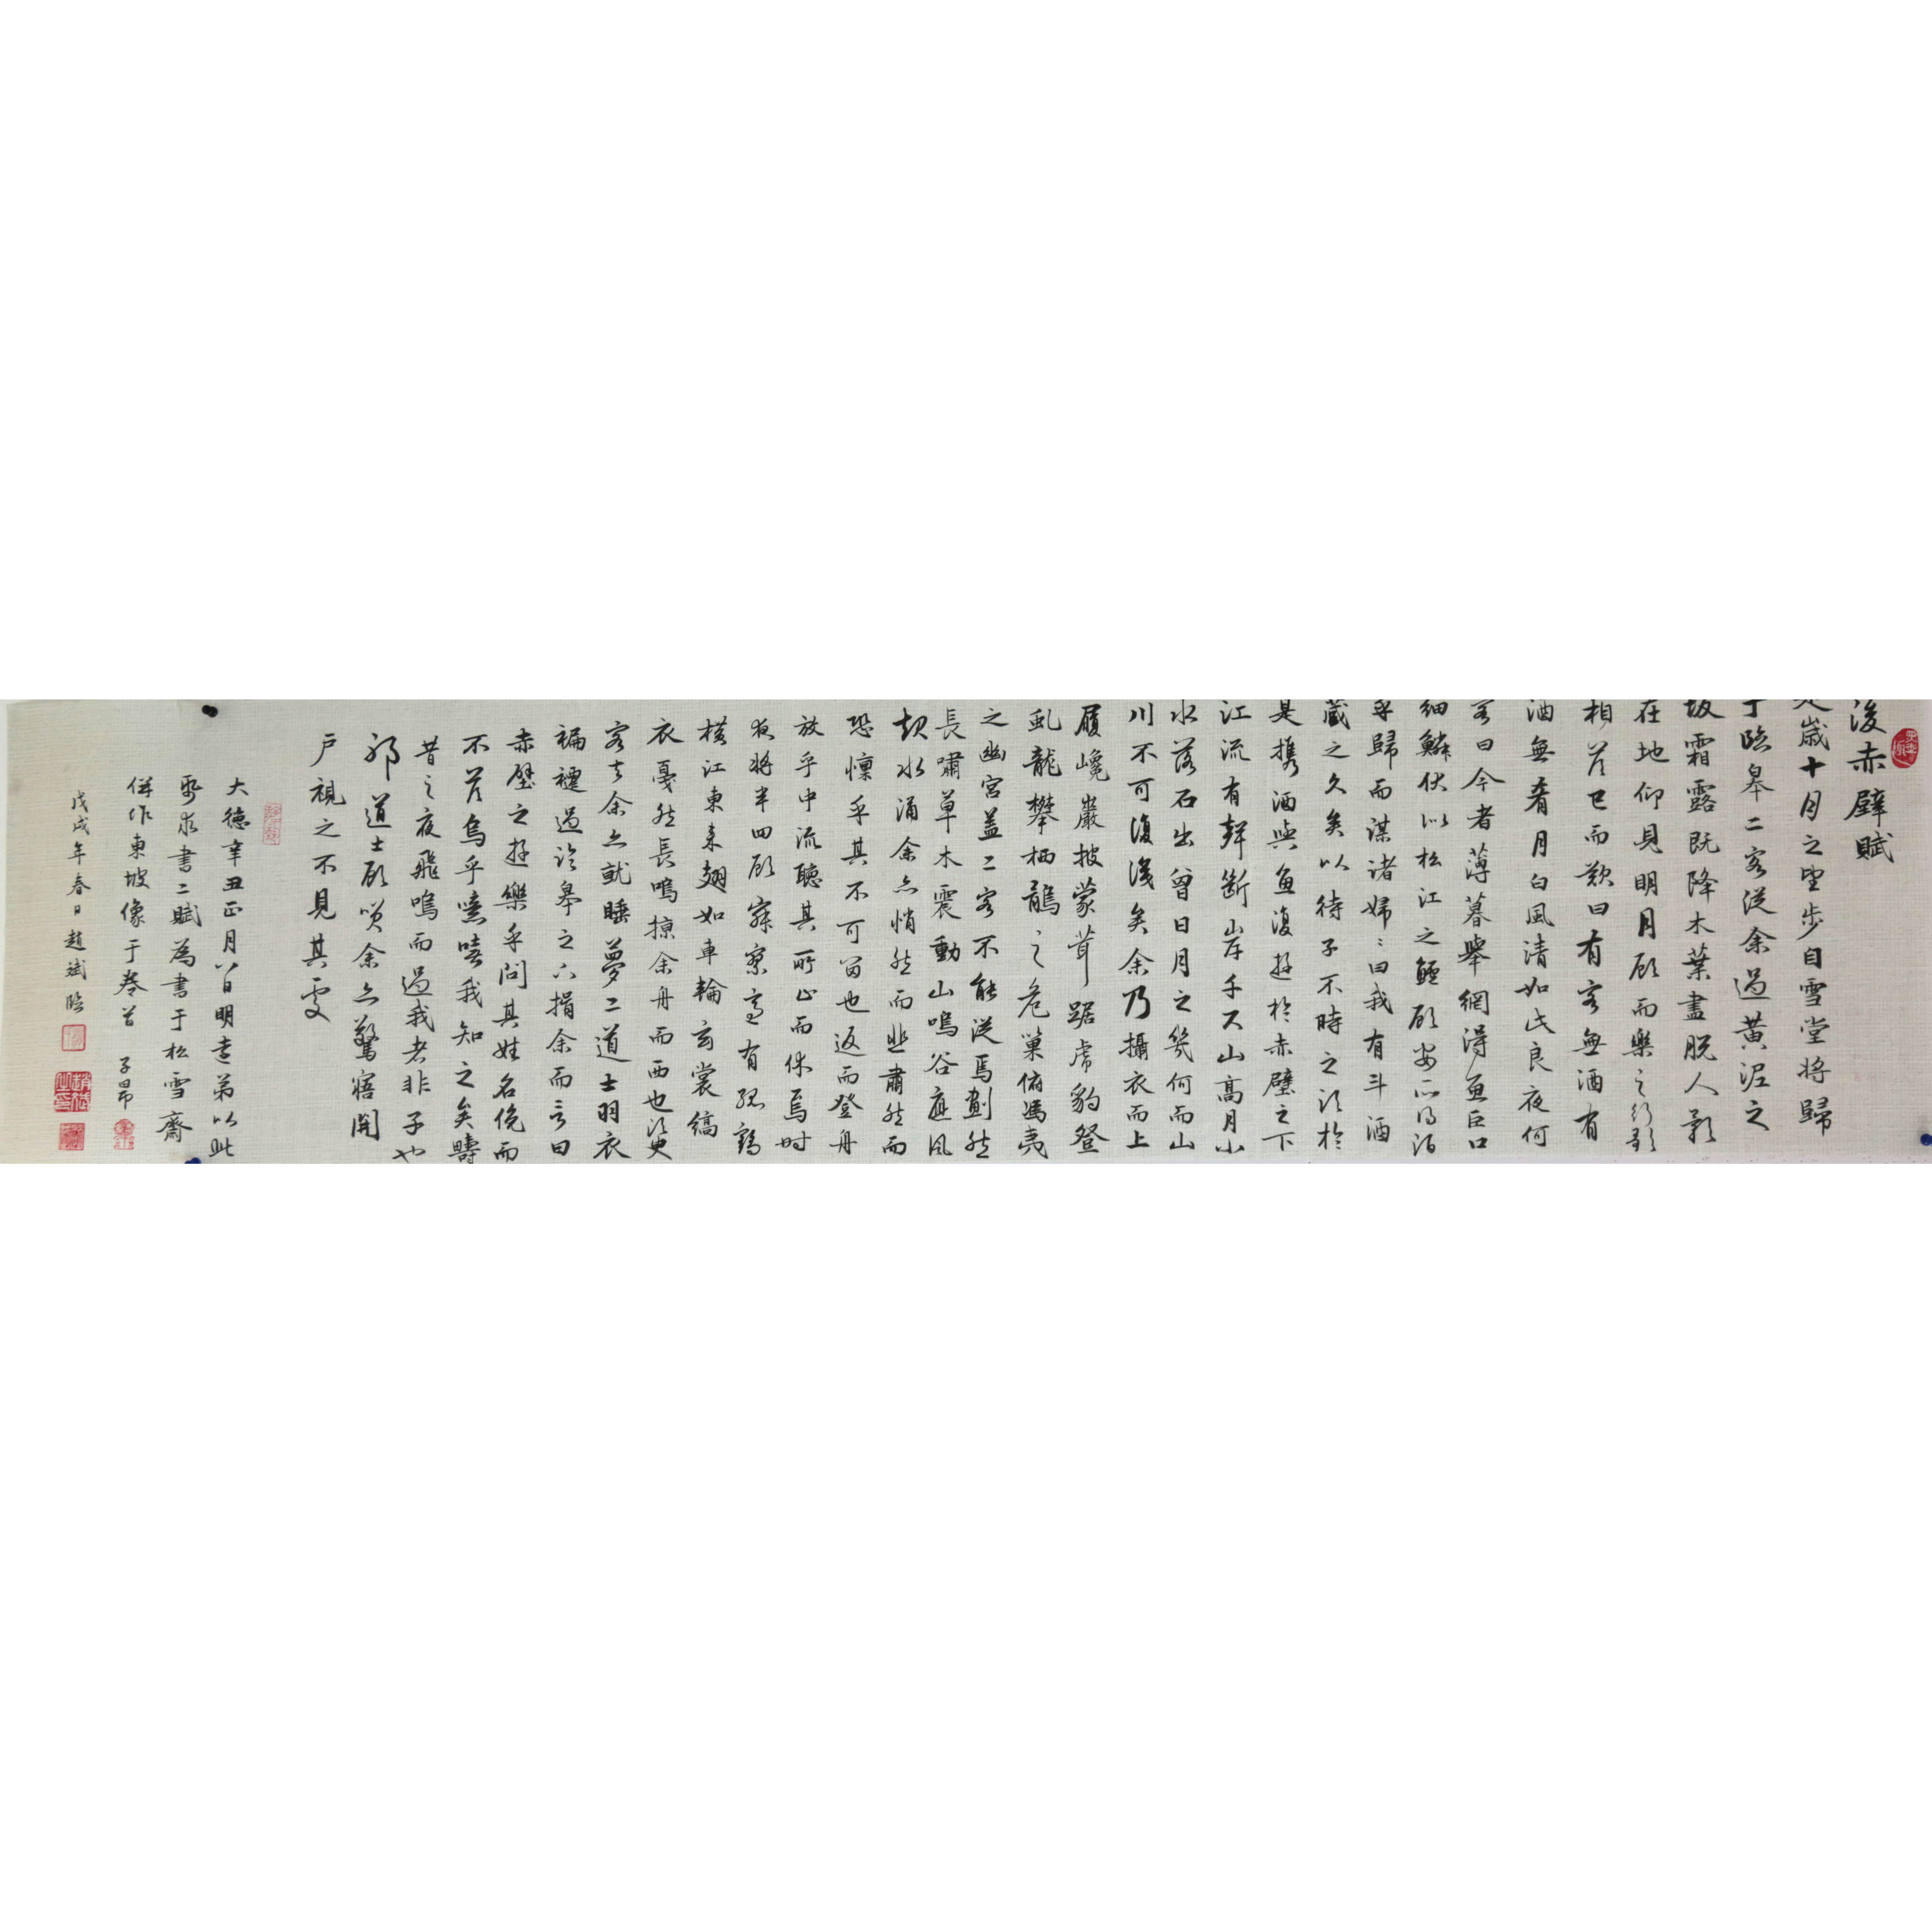 後赤壁賦
是歲十月之望步自雪堂將歸
于臨皋二客從余過黃泥之
坂霜露既降木葉盡脫人影
在地仰見明月顧而樂之行歌
相答已而歎曰有客無酒有
酒無肴月白風清如此良夜何
客曰今者薄暮舉網得魚巨口
細鱗狀似松江之鱸顧安所得酒
乎歸而謀諸婦〻曰我有斗酒
藏之久矣以待子不時之須於
是攜酒與魚復遊於赤壁之下
江流有聲斷岸千尺山高月小
水落石出曾日月之幾何而山
川不可復識矣余乃攝衣而上
履巉巖披蒙茸踞虎豹登
虬龍攀栖鶻之危巢俯馮夷
之幽宮蓋二客不能從焉劃然
長嘯草木震動山鳴谷應風
起水涌余亦悄然而悲肅然而
恐懍乎其不可留也返而登舟
放乎中流聽其所止而休焉時
夜將半四顧寂寥適有孤鶴
橫江東來翅如車輪玄裳縞
衣戛然長鳴掠余舟而西也須臾
客去余亦就睡夢二道士羽衣
褊褼過臨皋之下揖余而言曰
赤壁之遊樂乎問其姓名俛而
不答烏乎噫嘻我知之矣疇
昔之夜飛鳴而過我者非子也
邪道士顧笑余亦驚寤開
戶視之不見其處
大德辛丑正月八日明遠弟以此
紙求書二賦為書于松雪齋
併作東坡像于卷首 子昂
戊戌年春日趙斌臨